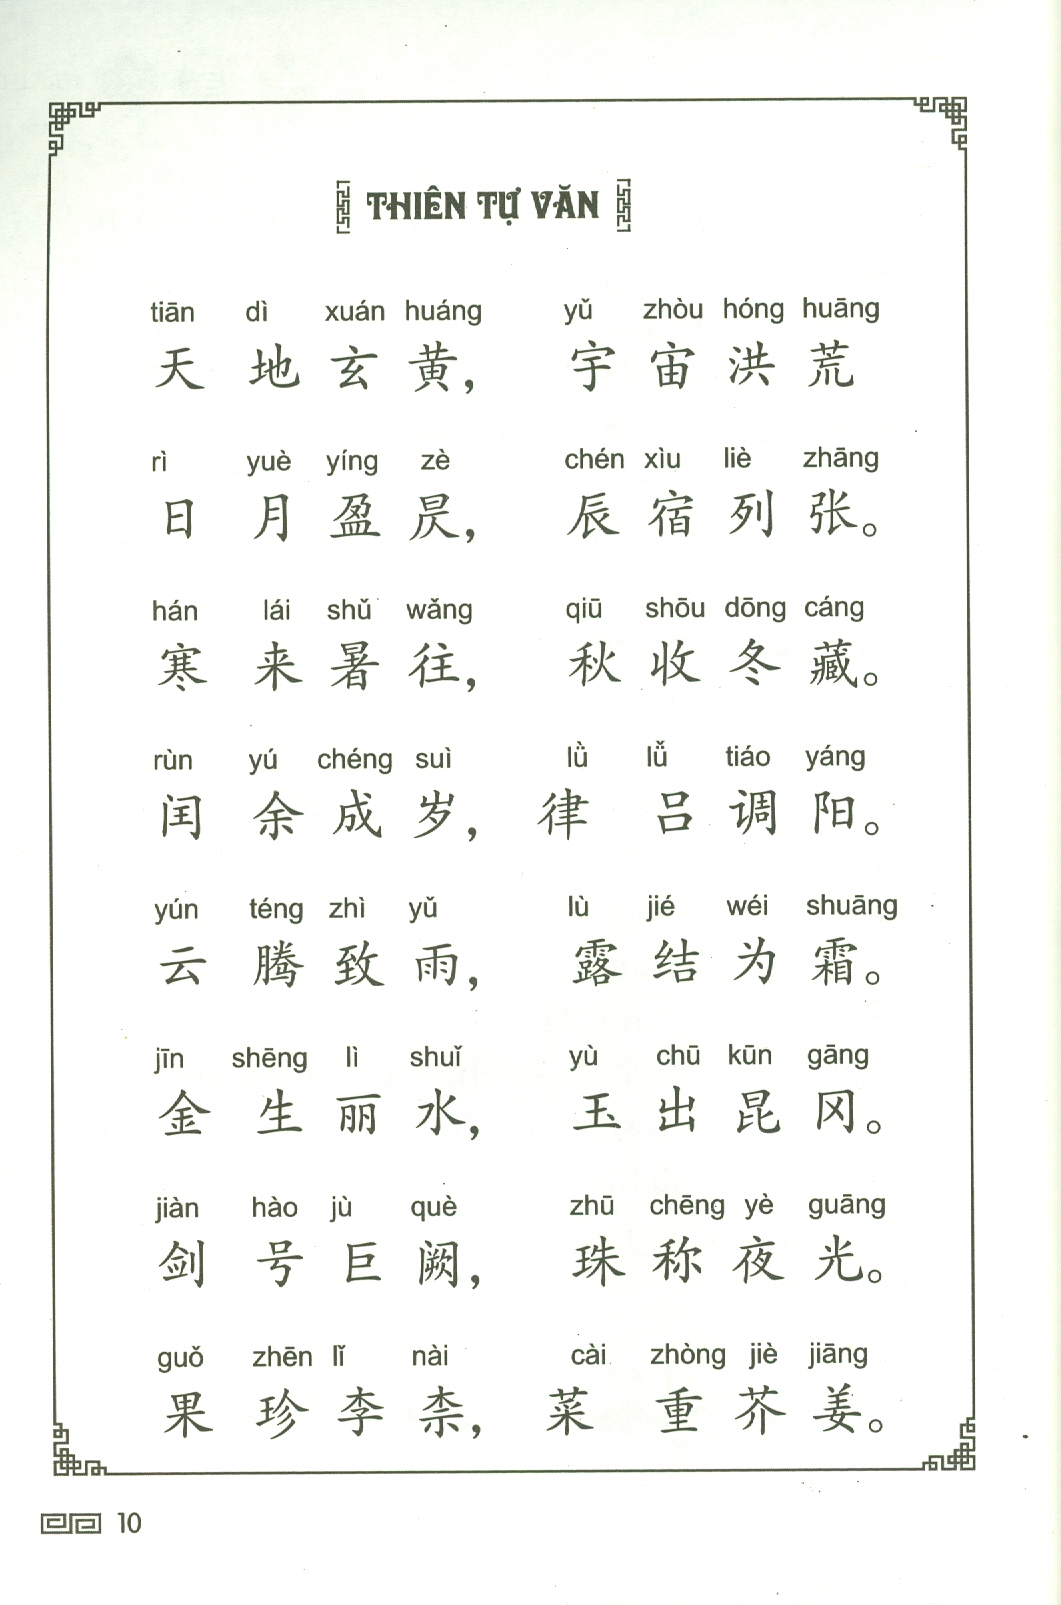 THIÊN TỰ VĂN
tiān dì xuán huáng yǔ zhòu hóng huāng
天地玄黄，宇宙洪荒
rì yuè yíng zè chén xìu liè zhāng
日月盈昃，辰宿列张。
hán lái shǔ wǎng qiū shōu dōng cáng
寒来暑往，秋收冬藏。
rùn yú chéng suì lǜ lǚ tiáo yáng
闰余成岁，律吕调阳。
yún téng zhì yǔ lù jié wéi shuāng
云腾致雨，露结为霜。
jīn shēng lì shuǐ yù chū kūn gāng
金生丽水，玉出昆冈。
jiàn hào jù què zhū chēng yè guāng
剑号巨阙，珠称夜光。
guǒ zhēn lǐ nài cài zhòng jiè jiāng
果珍李柰，菜重芥姜。
10